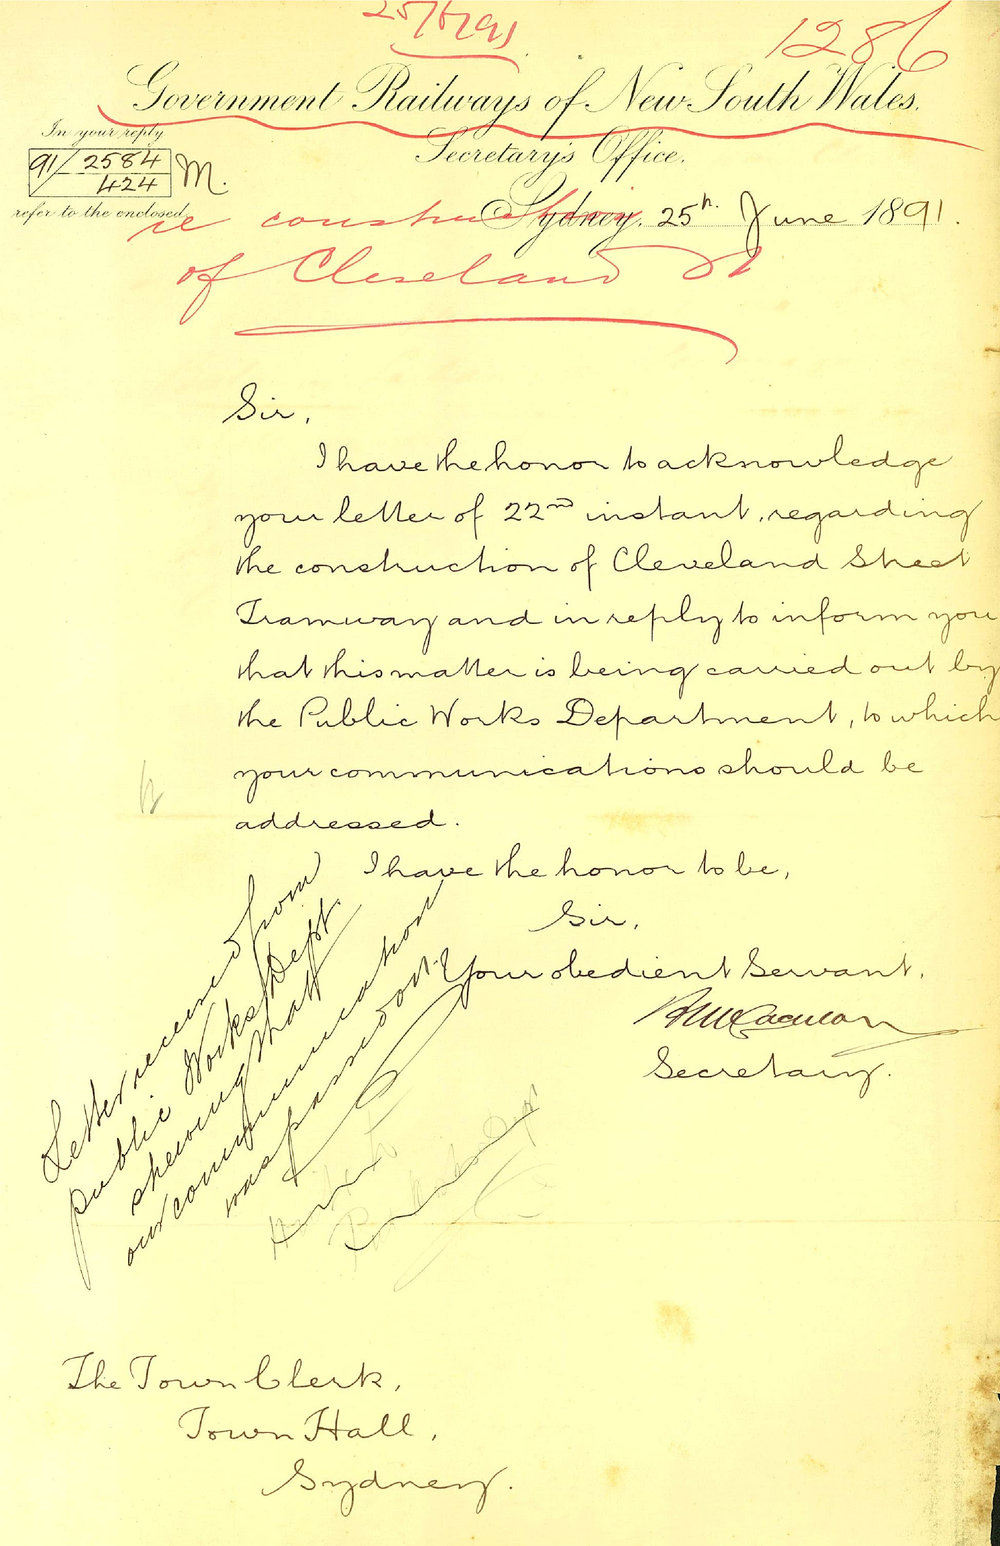 25/6/91
1286
Government Railways of New South Wales.
In your reply
91/2584
424
M.
refer to the enclosed
Secretary's Office.
Sydney. 25th. June 1891.
re construction
of Cleveland St
Sir,
I have the honor to acknowledge
your letter of 22nd instant, regarding
the construction of Cleveland Street
Tramway and in reply to inform you
that this matter is being carried out by
the Public Works Department, to which
your communications should be
addressed.
I have the honor to be,
Sir,
Your obedient Servant.
Secretary.
Letter received from
public Works Dept.
shewing that
our communication
was passed on.
The Town Clerk,
Town Hall,
Sydney.